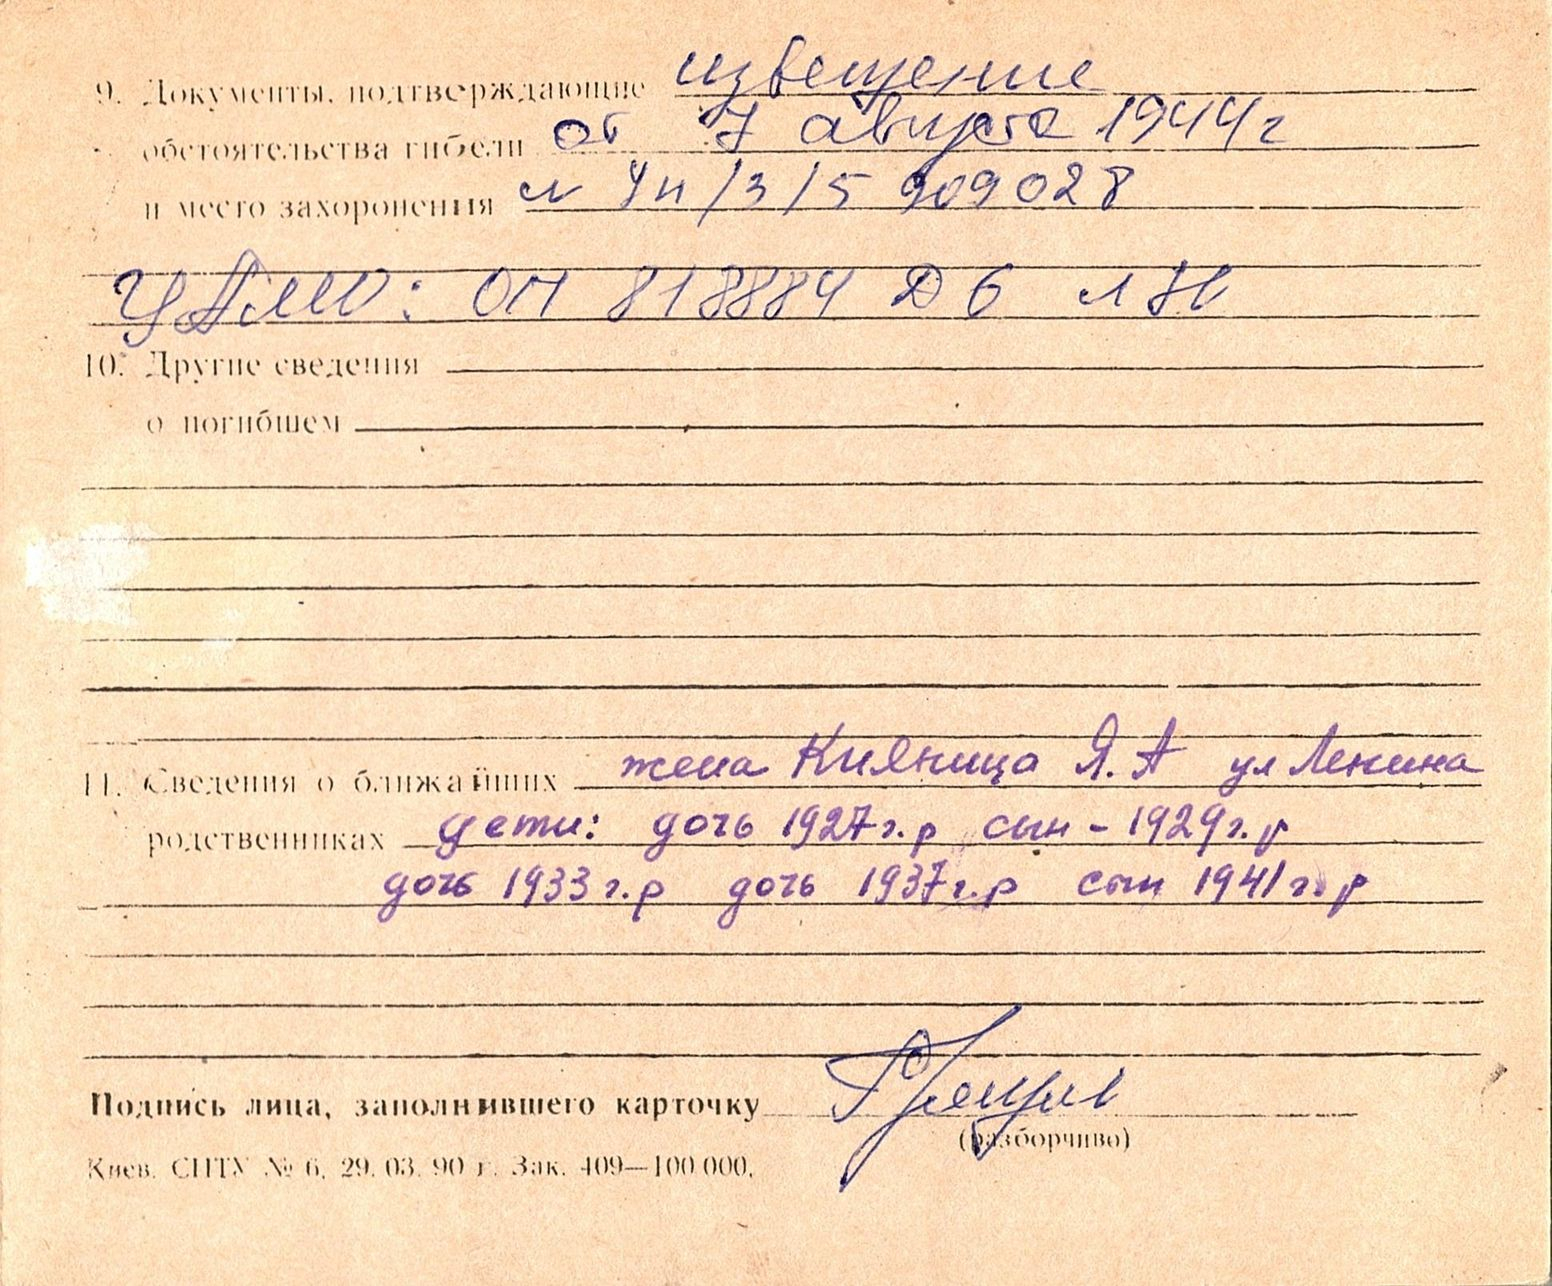 9. Документы, подтверждающие извещение
обстоятельства гибели от 7 августа 1944 г
и место захоронения N Уп/3/5 909028
ЦАМО: ОП 818884 Д 6
10. Другие сведения
о погибшем
11. Сведения о ближайших жена Кияница Я. А ул Ленина
родственниках дети: дочь 1927 г. р сын - 1929 г. р
дочь 1933 г. р дочь 1937 г. р сын 1941 г. р
Подпись лица, заполнившего карточку
(разборчиво)
Киев. СПТУ № 6. 29. 03. 90 г. Зак. 409—100 000.